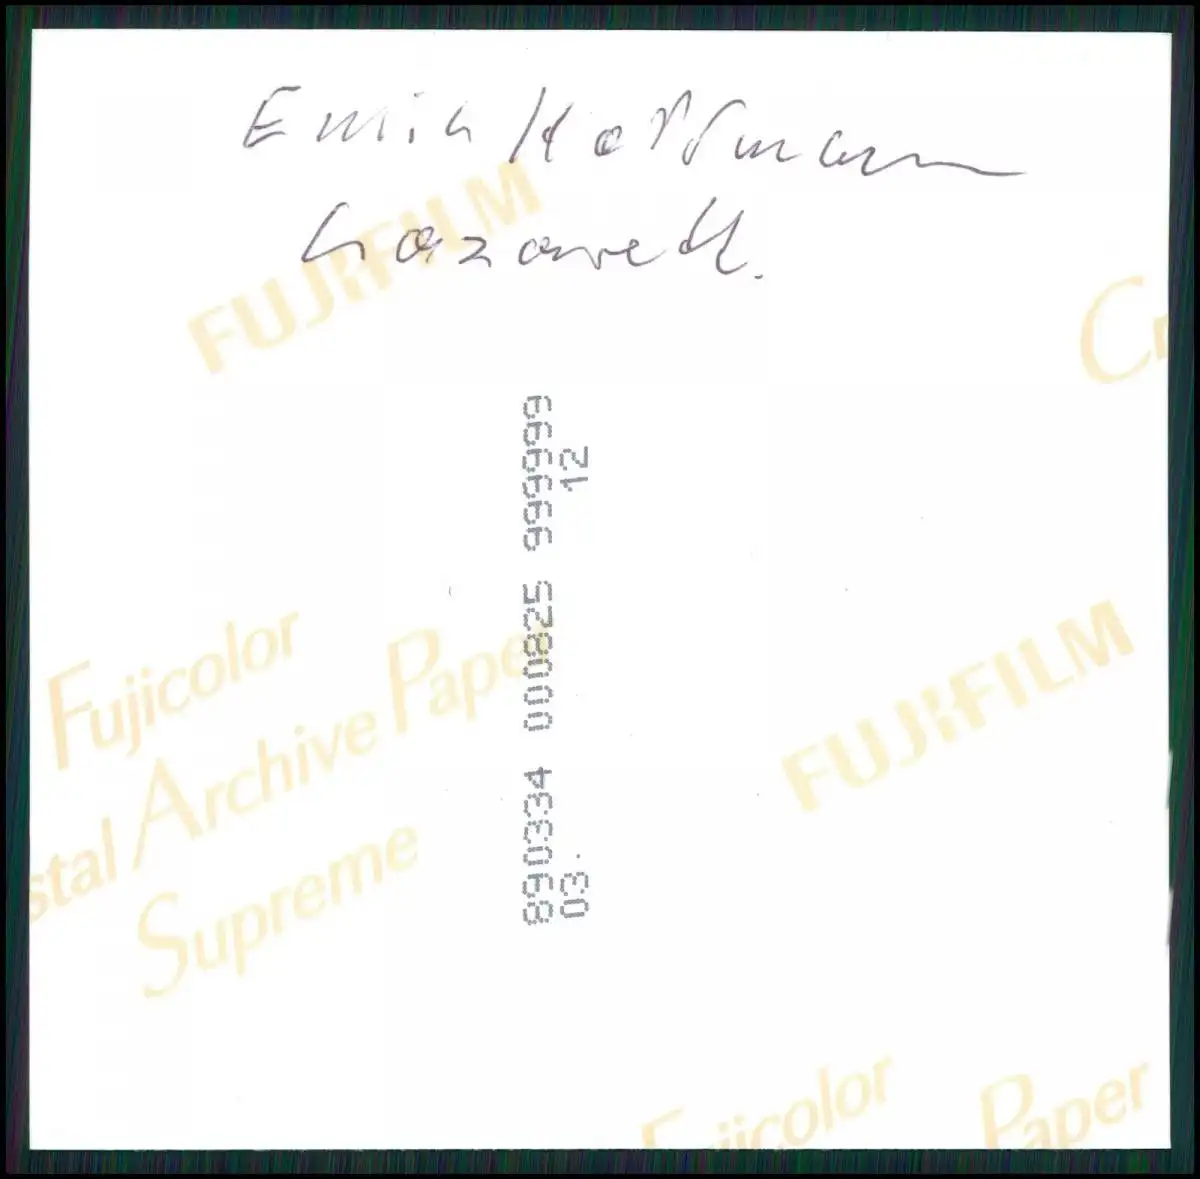 Emil Hoffmann
FUJIFILM
Cr
890334 000825 999999
03. 12
Fujicolor
stal Archive Paper
Supreme
FUJIFILM
Fujicolor
Paper